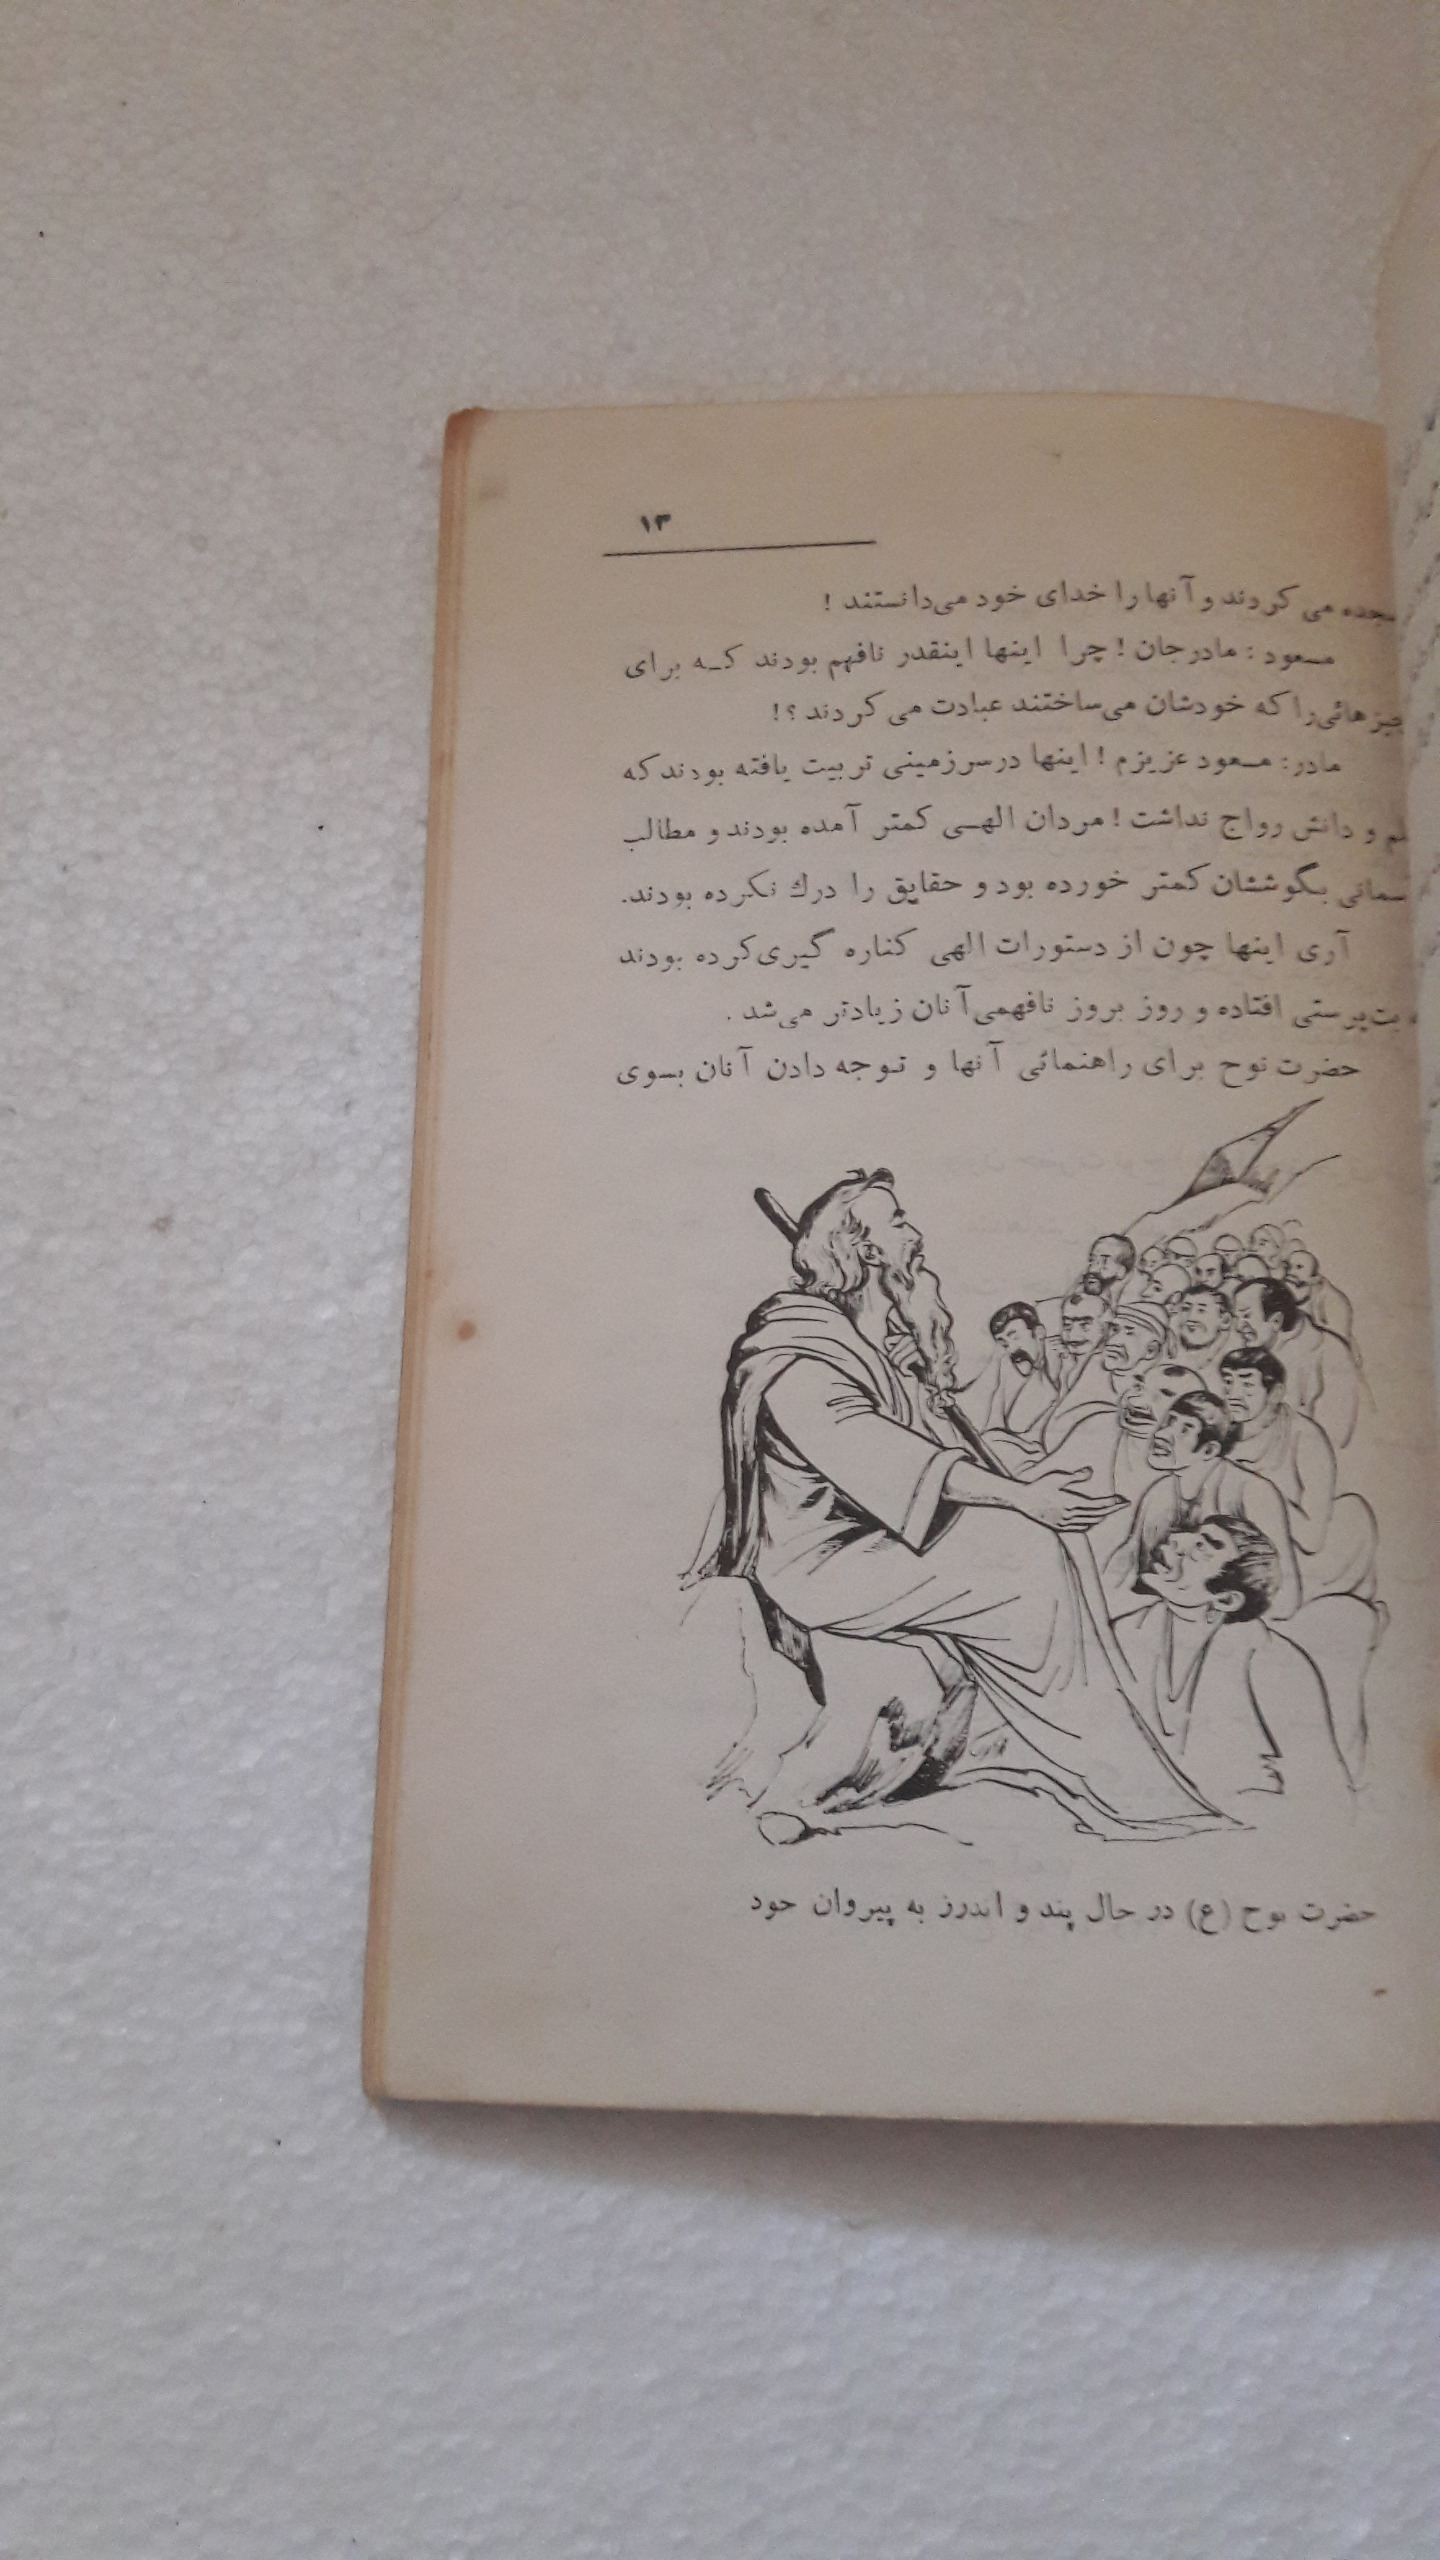 ۱۳
سجده می کردند و آنها را خدای خود می‌دانستند !
مسعود : مادرجان ! چرا اینها اینقدر نافهم بودند کـه برای
چیزهائی‌را که خودشان می‌ساختند عبادت می کردند ؟!
مادر: مسعود عزیزم ! اینها درسرزمینی تربیت یافته بودند که
و دانش رواج نداشت ! مردان الهـی کمتر آمده بودند و مطالب
بگوششان کمتر خورده بود و حقایق را درك نکرده بودند.
آری اینها چون از دستورات الهی کناره گیری‌کرده بودند
بت‌پرستی افتاده و روز بروز نافهمی‌آنان زیادتر می‌شد .
حضرت نوح برای راهنمائی آنها و تـوجه دادن آنان بسوی
حضرت نوح (ع) در حال پند و اندرز به پیروان خود